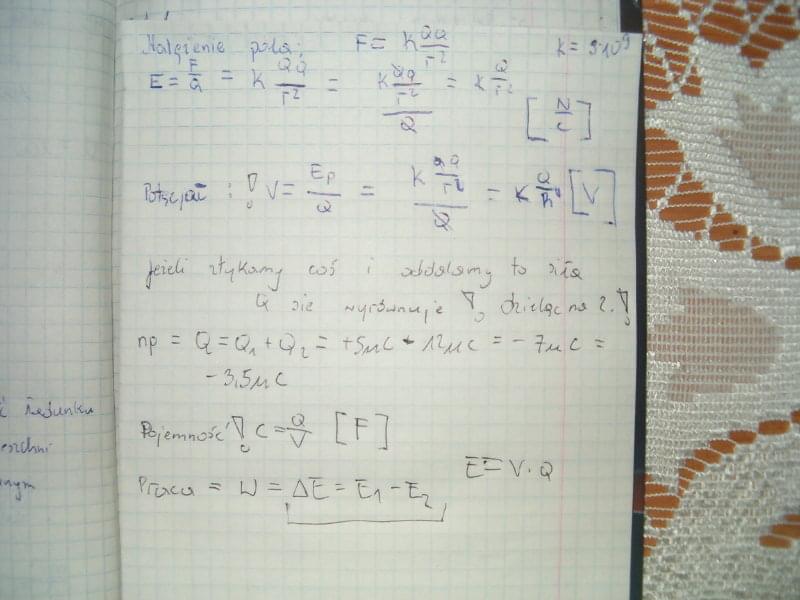 Natężenie pola: F= K QQ/r² k= 9·10⁹
E= F/Q = K QQ/r² = K Qq/r² / Q = K Q/r² [N/C]
Potencjał : ! V= Ep/Q = K QQ/r² / Q = K Q/R [V]
Jeżeli stykamy coś i oddalamy to siła
Q się wyrównuje !, dzieląc na 2. !
np = Q = Q₁ + Q₂ = +5μC - 12μC = - 7μC =
- 3,5μC
Pojemność ! C = Q/V [F]
E = V · Q
Praca = W = ΔE = E₁ - E₂
ć
nym